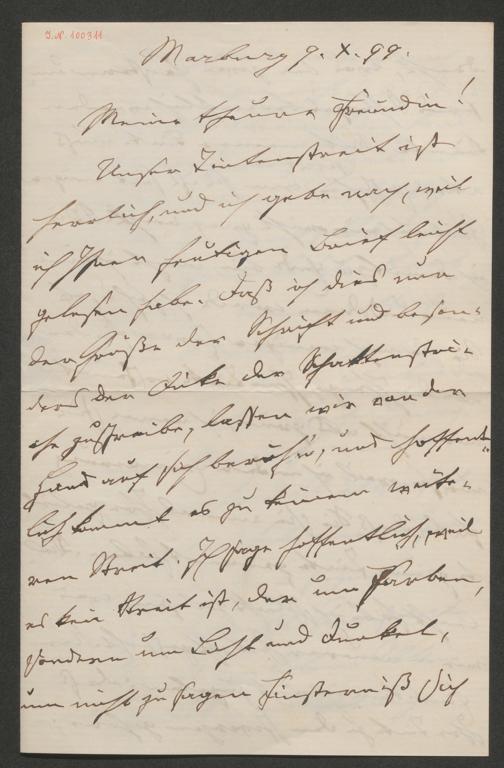 J.N. 100311
Marburg 9. X. 99.
Meine theure Freundin!
Unser Tintenstreit ist
herrlich, und ich gebe nach, weil
ich Ihren heutigen Brief leicht
gelesen habe. Daß ich dies nur
der Größe der Schrift und beson-
ders der Dicke der Schattenstri-
che zuschreibe, lassen wir von der
Hand auf sich beruh'n, und hoffent-
lich kommt es zu keinem weite-
ren Streit. Ich sage hoffentlich, weil
es kein Streit ist, der um Farben,
sondern um Licht und Dunkel,
um nicht zu sagen Finsterniß sich